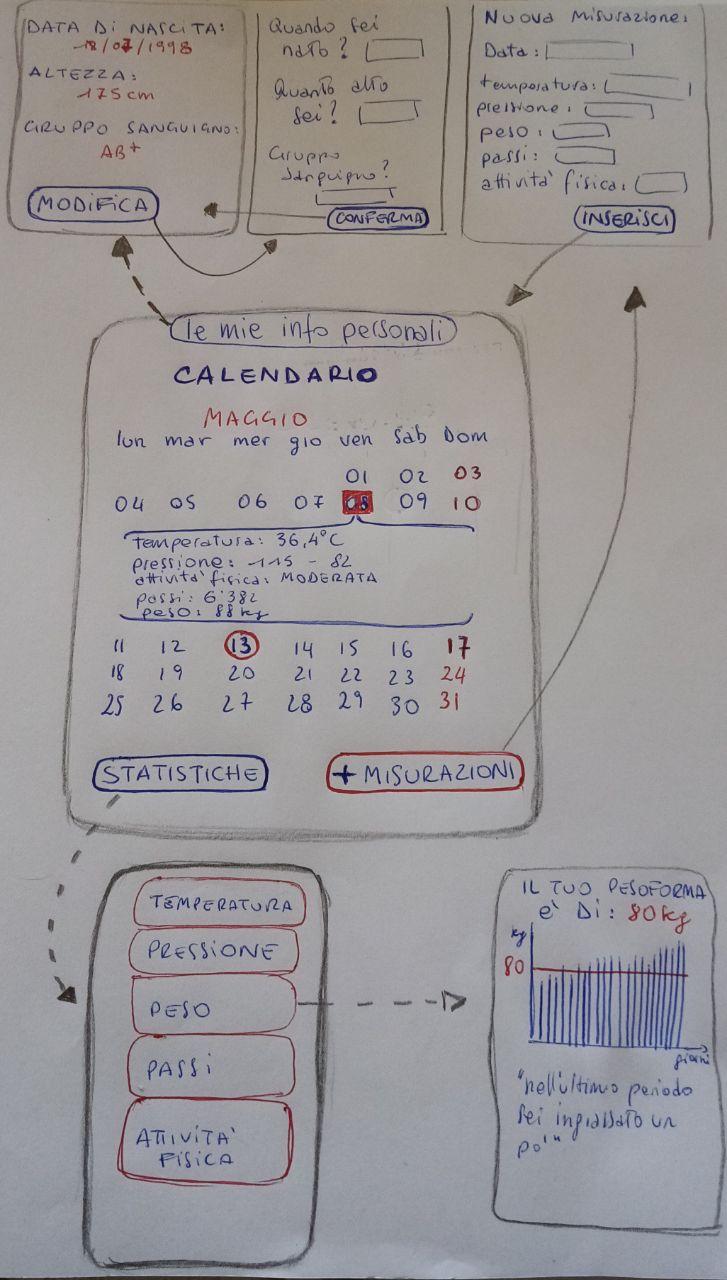 DATA DI NASCITA:
18/07/1998
ALTEZZA:
175 cm
GRUPPO SANGUIGNO:
AB+
MODIFICA
Quando sei
nato?
Quanto alto
sei?
Gruppo
sanguigno?
CONFERMA
Nuova Misurazione:
Data:
temperatura:
pressione:
peso:
passi:
attività fisica:
INSERISCI
le mie info personali
CALENDARIO
MAGGIO
lun mar mer gio ven sab Dom
01 02 03
04 05 06 07 08 09 10
temperatura: 36,4°C
pressione: 115 - 82
attività fisica: MODERATA
passi: 6'382
peso: 88 kg
11 12 13 14 15 16 17
18 19 20 21 22 23 24
25 26 27 28 29 30 31
STATISTICHE
+ MISURAZIONI
TEMPERATURA
PRESSIONE
PESO
PASSI
ATTIVITA'
FISICA
IL TUO PESOFORMA
e' Di: 80kg
kg
80
giorni
"nell'ultimo periodo
sei ingrassato un
po'"